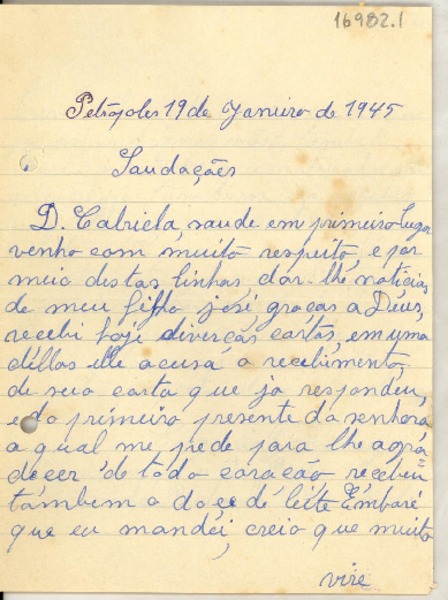 16982.1
Petrópoles 19 de Janeiro de 1945
Saudações
D. Gabriela, saude em primeiro lugar
venho com muito respeito, e por
meio destas linhas, dar-lhe noticias
de meu filho josé, graças a Déus,
recebi hoje diverças cartas, em uma
déllas ele acusa o recebimento,
de sua carta que ja respondeu,
e do primeiro presente da senhora
a qual me pede para lhe agrá
decer de todo coração, recebeu
támbem o doce de leite Embaré
que eu mandei, creio que muito
vire